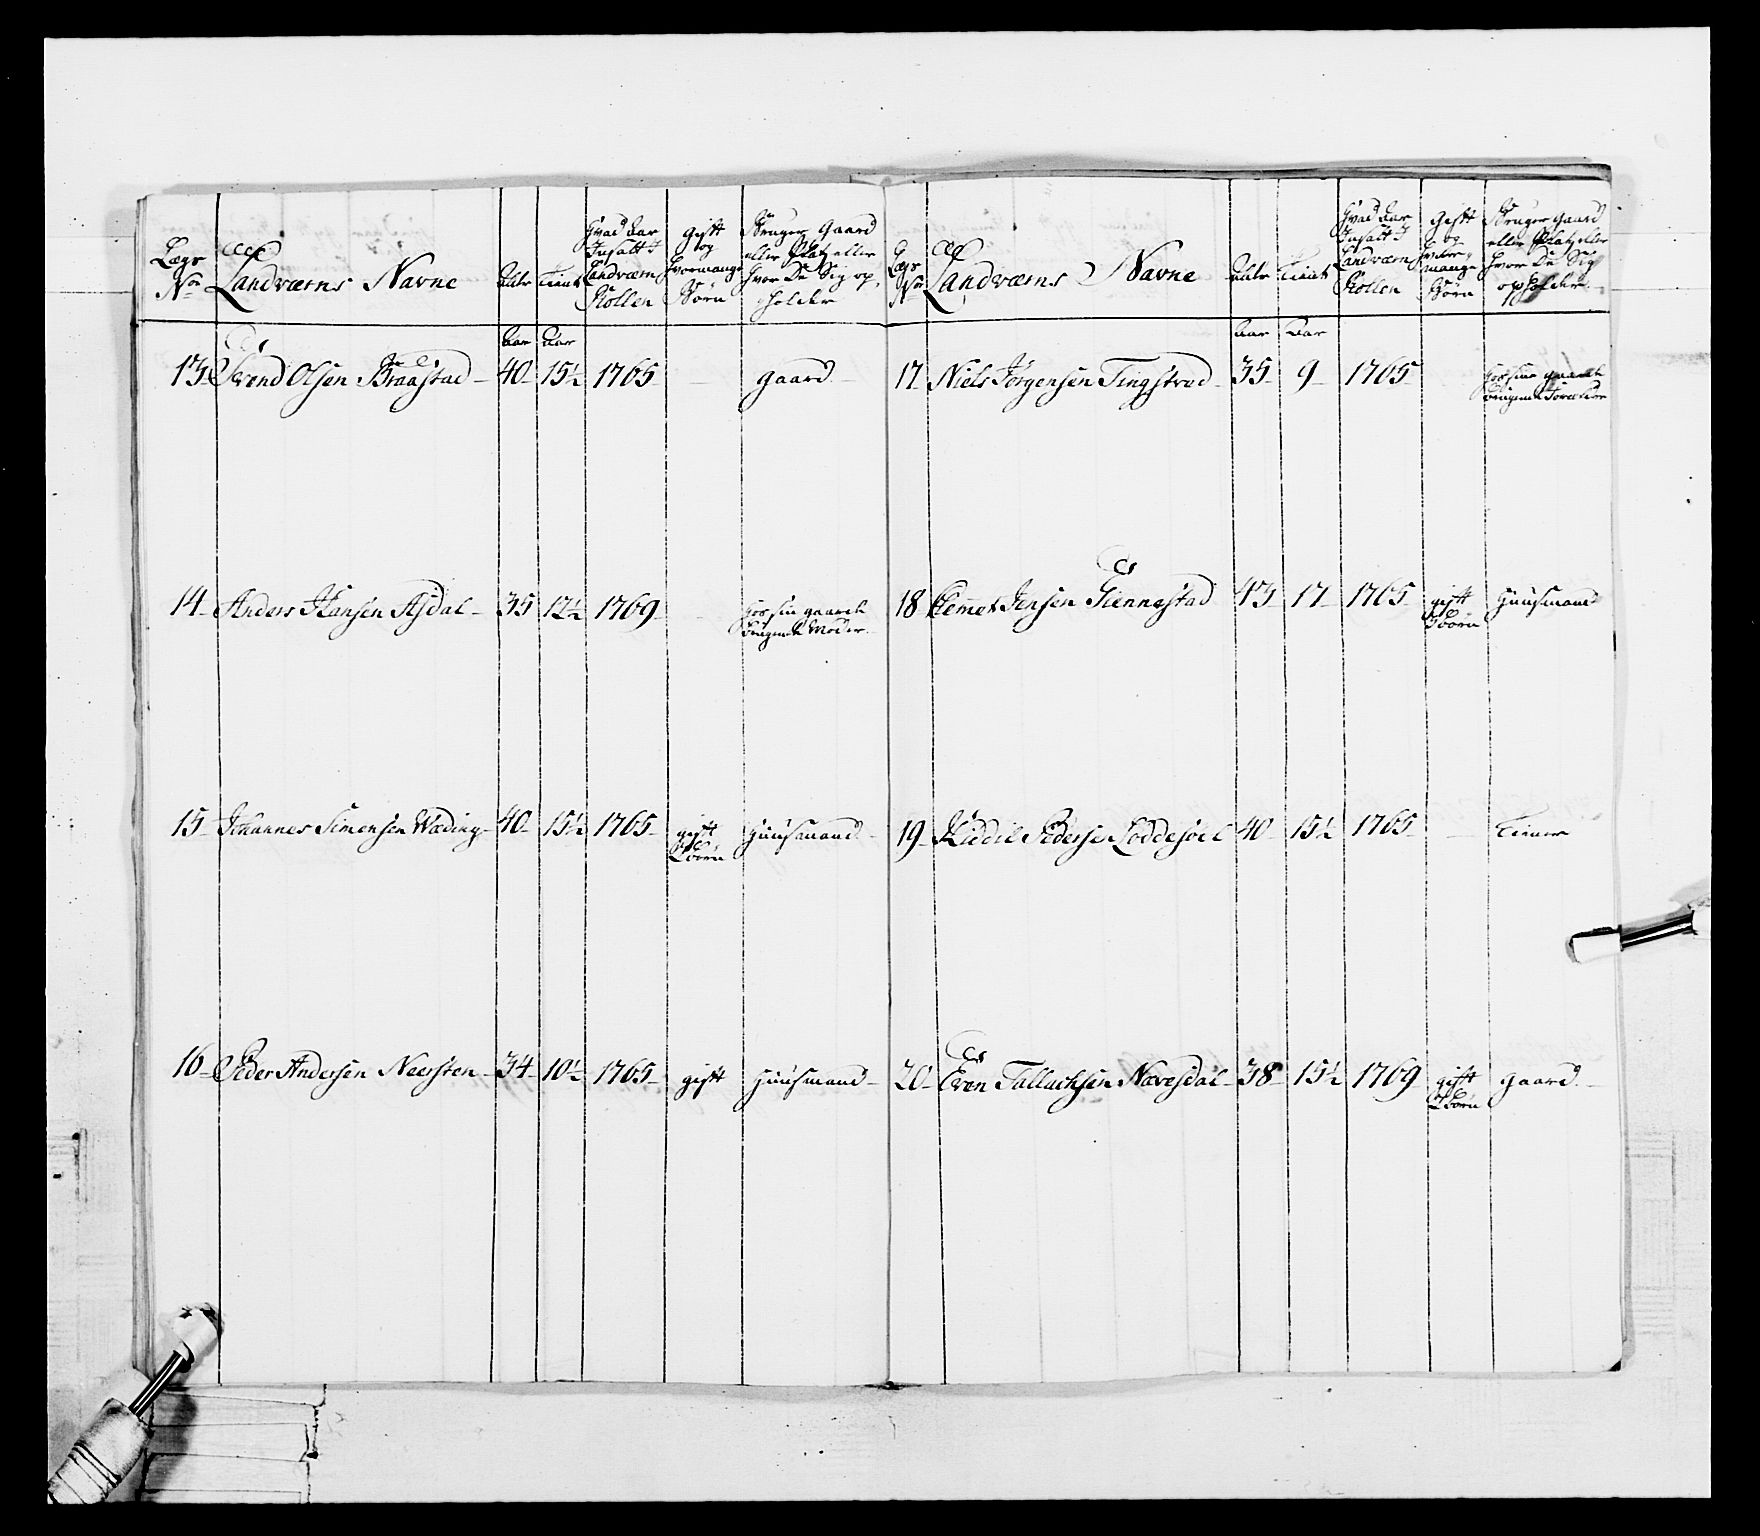 Lægs No
Landværns Navne
Aldr
Tient
Hvad Aar Indsatt I Landværn Rollen
Gift og Hvormange Børn
Bruger Gaard eller Platz eller Hvor De Sig opholder
Aar Aar
13 Svend Olsen Braastad 40 15½ 1765 gaard
14 Anders Hansen Asdal 35 12½ 1769 Hos sin gaard brugende Moder
15 Johannes Simensen Wæding 40 15½ 1765 gift 2 børn Huusmand
16 Peder Andersen Neersten 34 10½ 1765 gift Huusmand
Lægs No
Landværns Navne
Aldr
Tient
Hvad Aar Indsatt I Landværn Rollen
Gift og Hvormange Børn
Bruger Gaard eller Platz eller Hvor De Sig opholder
Aar Aar
17 Niels Jørgensen Tingstved 35 9 1765 Hos sine gaard brugende Forældre
18 Clemet Jensen 43 17 1765 gift 3 børn Huusmand
19 Kiddel Pederse Loddesøel 40 15½ 1765 Tiener
20 Even Tallachsen Nævesdal 38 15½ 1769 gift 2 børn gaard